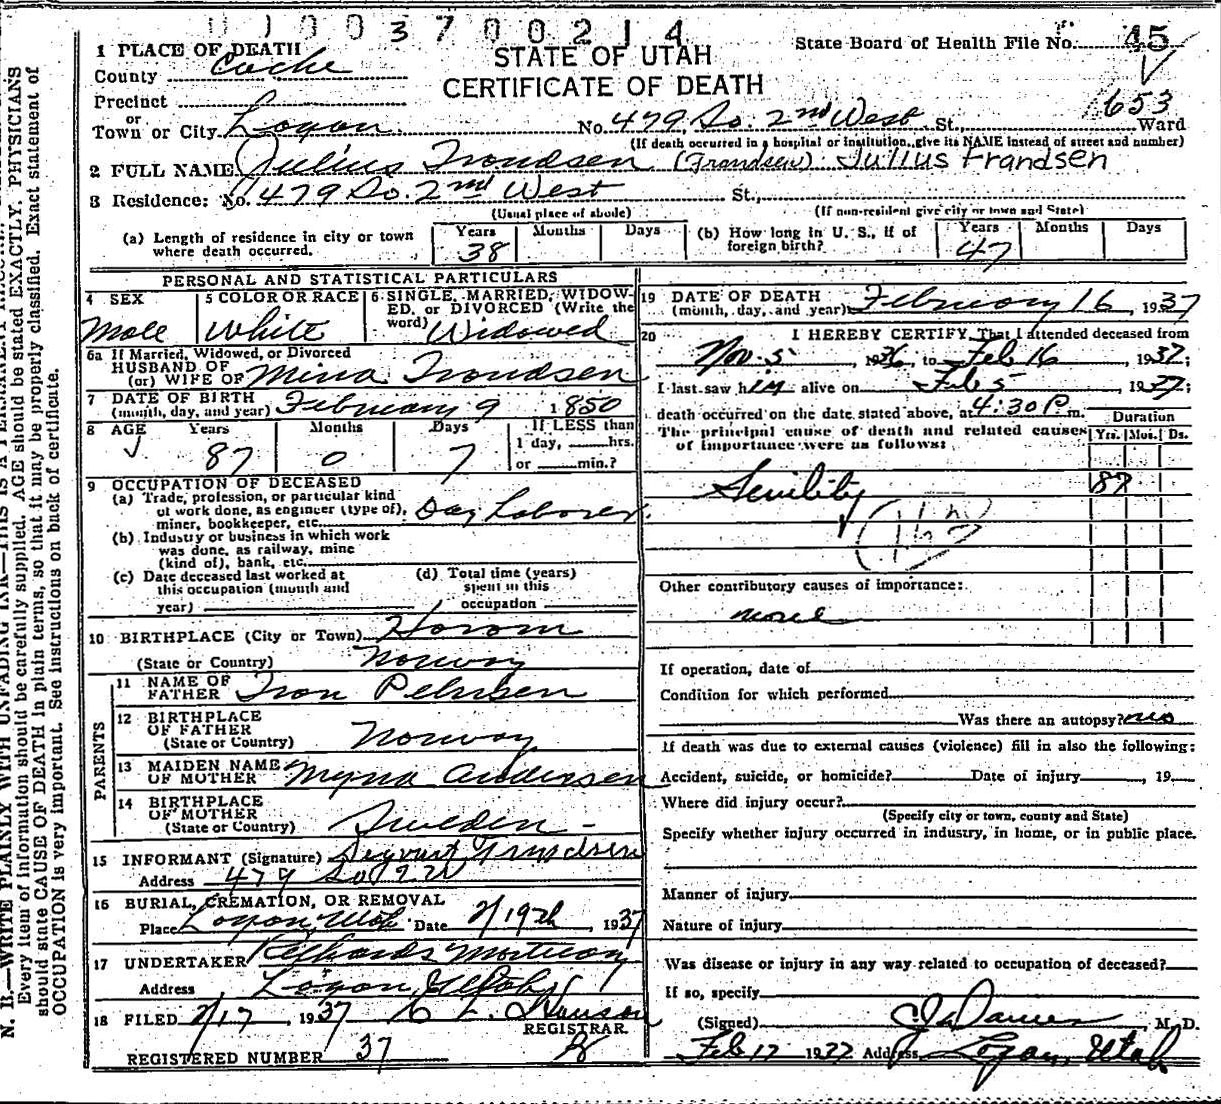 003700214
STATE OF UTAH
CERTIFICATE OF DEATH
State Board of Health File No. 45
653
1 PLACE OF DEATH
County Cache
Precinct
or
Town or City Logan No. 479 So. 2nd West St., Ward
(If death occurred in a hospital or institution, give its NAME instead of street and number)
2 FULL NAME Julius Trondsen (Frandsen) Julius Frandsen
3 Residence: No. 479 So. 2nd West St.,
(Usual place of abode) (If non-resident give city or town and State)
(a) Length of residence in city or town where death occurred. Years 38 Months Days (b) How long in U. S., if of foreign birth? Years 47 Months Days
PERSONAL AND STATISTICAL PARTICULARS
4 SEX
Male
5 COLOR OR RACE
White
6 SINGLE, MARRIED, WIDOW-
ED, or DIVORCED (Write the
word) Widowed
6a If Married, Widowed, or Divorced
HUSBAND OF
(or) WIFE OF Mina Trondsen
7 DATE OF BIRTH
(month, day, and year) February 9 1850
8 AGE Years Months Days If LESS than
87 0 7 1 day, hrs.
or min.?
9 OCCUPATION OF DECEASED
(a) Trade, profession, or particular kind
of work done, as engineer (type of),
miner, bookkeeper, etc. Day Laborer
(b) Industry or business in which work
was done, as railway, mine
(kind of), bank, etc.
(c) Date deceased last worked at
this occupation (month and
year)
(d) Total time (years)
spent in this
occupation
10 BIRTHPLACE (City or Town)
(State or Country) Norway
PARENTS
11 NAME OF
FATHER Tron
12 BIRTHPLACE
OF FATHER
(State or Country) Norway
13 MAIDEN NAME
OF MOTHER Myna Andersen
14 BIRTHPLACE
OF MOTHER
(State or Country) Sweden
15 INFORMANT (Signature)
Address 479 So 2 W
16 BURIAL, CREMATION, OR REMOVAL
Place Logan, Utah Date 2/19th, 1937
17 UNDERTAKER Richards Mortuary
Address Logan, Utah
18 FILED 2/17, 1937
REGISTRAR
REGISTERED NUMBER 37
19 DATE OF DEATH
(month, day, and year) February 16, 1937
20 I HEREBY CERTIFY, That I attended deceased from
Nov. 5 1936, to Feb 16, 1937;
I last saw him alive on Feb 5, 1937;
death occurred on the date stated above, at 4:30 P.m.
The principal cause of death and related causes
of importance were as follows:
Duration
Yrs. Mos. Ds.
Senility 87
Other contributory causes of importance:
none
If operation, date of
Condition for which performed
Was there an autopsy? no
If death was due to external causes (violence) fill in also the following:
Accident, suicide, or homicide? Date of injury, 19
Where did injury occur?
(Specify city or town, county and State)
Specify whether injury occurred in industry, in home, or in public place.
Manner of injury
Nature of injury
Was disease or injury in any way related to occupation of deceased?
If so, specify
(Signed) M. D.
Feb 17 1937 Address Logan, Utah
N. B.—WRITE PLAINLY WITH UNFADING INK—THIS IS A PERMANENT
Every item of information should be carefully supplied. AGE should be stated EXACTLY. PHYSICIANS
should state CAUSE OF DEATH in plain terms, so that it may be properly classified. Exact statement of
OCCUPATION is very important. See instructions on back of certificate.